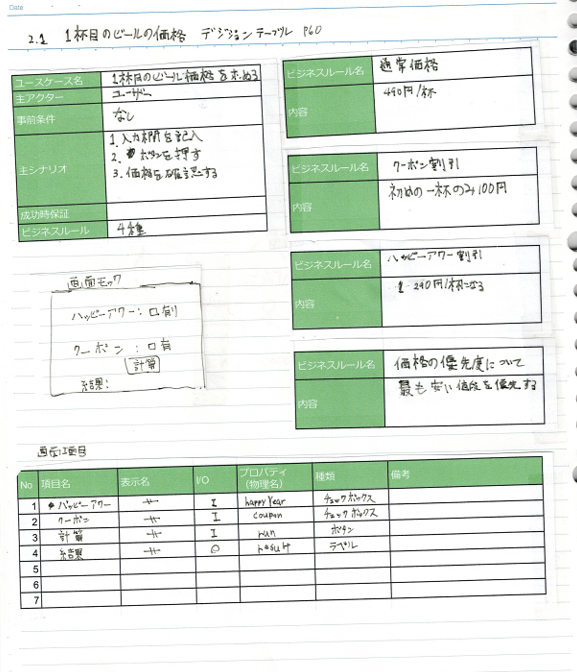 Date
2.1 1杯目のビールの価格 デシジョンテーブル P60
ユースケース名 1杯目のビール価格を求める
主アクター ユーザー
事前条件 なし
主シナリオ 1. 入力欄を記入
2. ボタンを押す
3. 価格を確認する
成功時保証
ビジネスルール 4種
ビジネスルール名 通常価格
内容 490円/杯
ビジネスルール名 クーポン割引
内容 初めの一杯のみ100円
ビジネスルール名 ハッピーアワー割引
内容 290円/杯になる
ビジネスルール名 価格の優先度について
内容 最も安い値段を優先する
画面モック
ハッピーアワー：□有り
クーポン：□有
計算
結果：
画面項目
No 項目名 表示名 I/O プロパティ(物理名) 種類 備考
1 ハッピーアワー 〃 I happyYear チェックボックス
2 クーポン 〃 I coupon チェックボックス
3 計算 〃 I run ボタン
4 結果 〃 O result ラベル
5
6
7